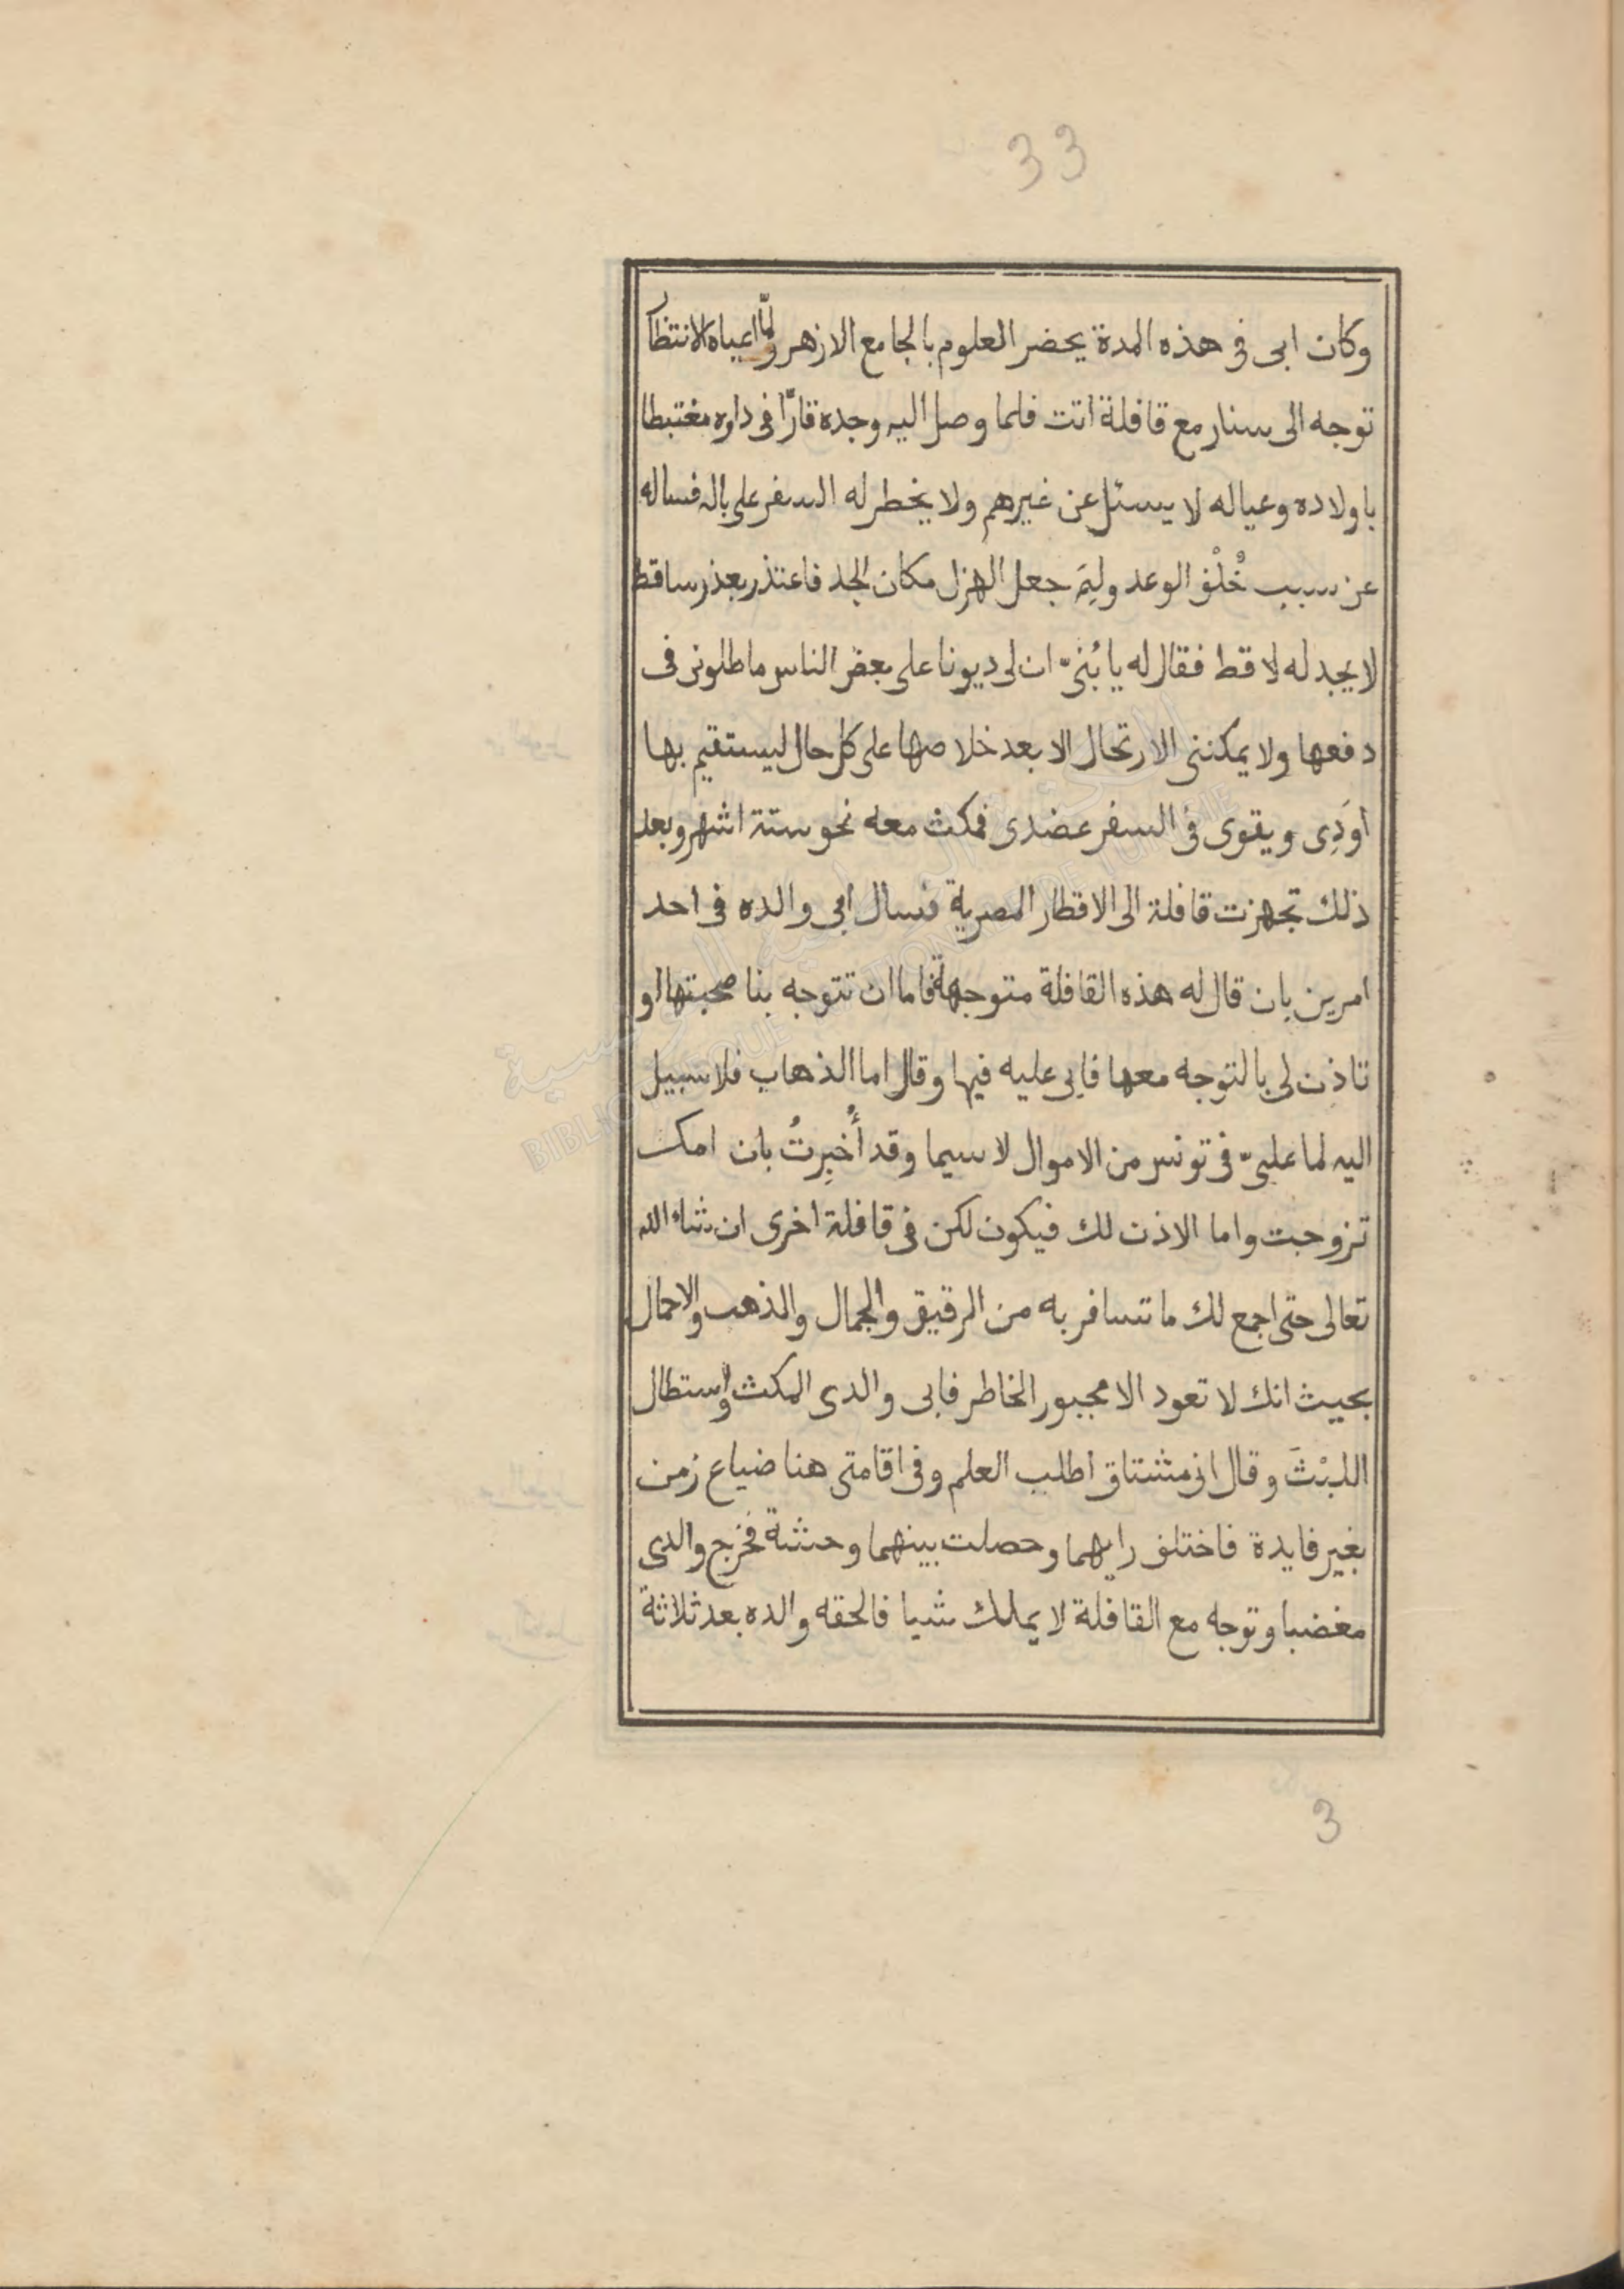 33
وكان ابى فى هذه المدة يحضر العلوم بالجامع الازهر ولمّا اعياه الانتظار
توجه الى سنار مع قافلة اتت فلما وصل اليه وجده قارًّا فى داره مغتبطا
باولاده وعياله لا يسئل عن غيرهم ولا يخطر له السفر على باله فساله
عن سبب خُلْف الوعد ولِمَ جعل الهزل مكان الجد فاعتذر بعذر ساقط
لا يجد له لاقط فقال له يا بُنىّ ان لى ديونا على بعض الناس ماطلونى فى
دفعها ولا يمكننى الارتحال الا بعد خلاصها على كل حال ليستقيم بها
اوَدِى ويقوى فى السفر عضدى فمكث معه نحو ستة اشهر وبعد
ذلك تجهزت قافلة الى الاقطار المصرية فسال ابى والده فى احد
امرين بان قال له هذه القافلة متوجهة فاما ان تتوجه بنا صحبتها او
تاذن لى بالتوجه معها فابى عليه فيها وقال اما الذهاب فلا سبيل
اليه لما علىّ فى تونس من الاموال لا سيما وقد أُخبِرتُ بان امك
تزوجت واما الاذن لك فيكون لكن فى قافلة اخرى ان شاء الله
تعالى حتى اجمع لك ما تسافر به من الرقيق والجمال والذهب والاحمال
بحيث انك لا تعود الا مجبور الخاطر فابى والدى المكث واستطال
اللبْثَ وقال انى مشتاق اطلب العلم وفى اقامتى هنا ضياع زمن
بغير فايدة فاختلف رايهما وحصلت بينهما وحشة فخرج والدى
مغضبا وتوجه مع القافلة لا يملك شيا فالحقه والده بعد ثلاثة
3